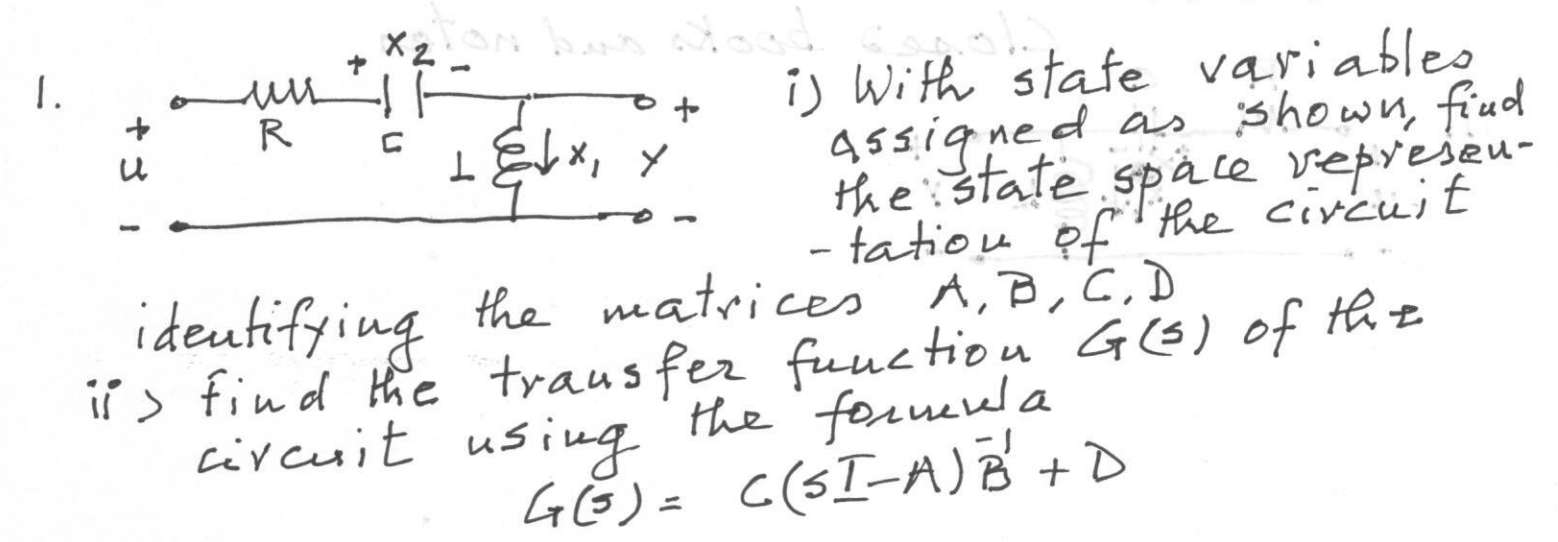 closes books and notes
1.
+ x2 -
R
C
+
u
-
L
x1
+
y
-
i) With state variables
assigned as shown, find
the state space represen-
-tation of the circuit
identifying the matrices A, B, C, D
ii) find the transfer function G(s) of the
circuit using the formula
G(s) = C(sI-A)⁻¹B + D